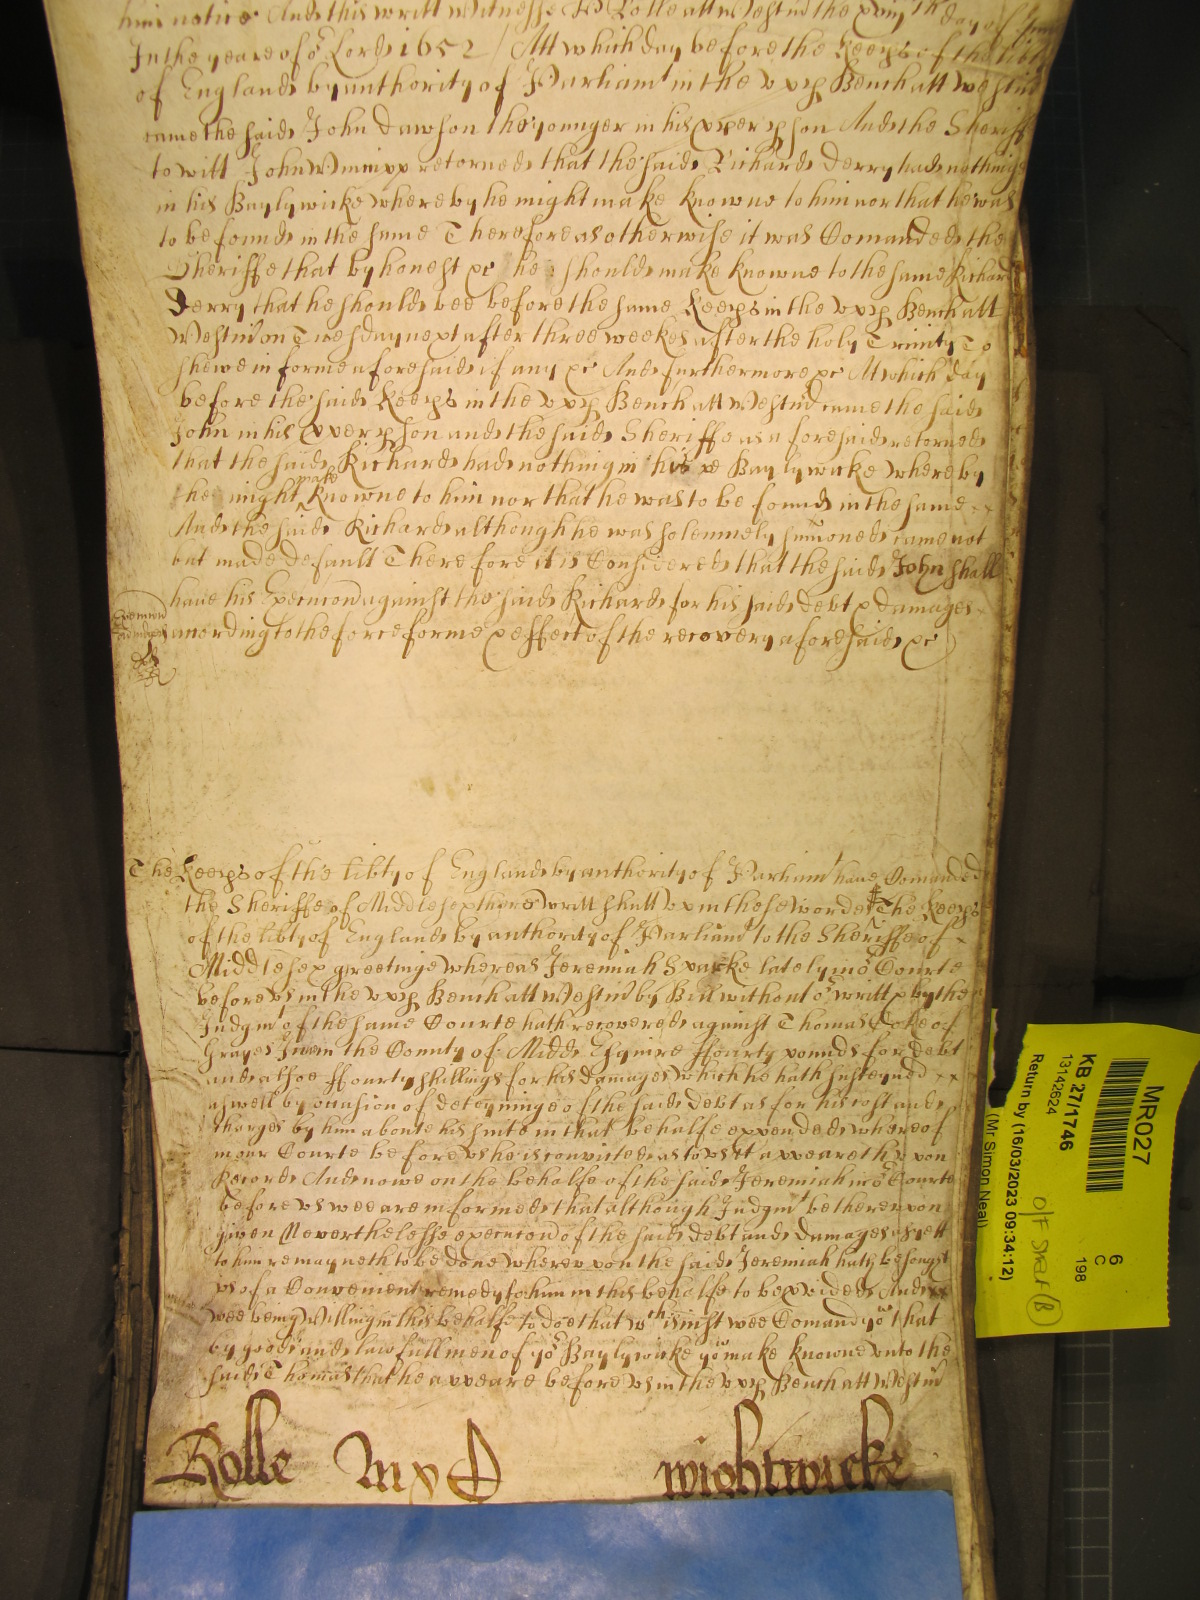 him notice And this writt Witnesse H Rolle att Westm̃ the xviijth day of
In the yeare of oʳ Lord 1652 / Att which day before the Keepṣ of the libty
of England by authority of Parliamᵗ in the vpp Bench att Westm̃
came the said John Dawson the younger in his pper pson And the Sheriffe
to witt John Wminpp retorned that the said Richard Derry had nothinge
in his Baylywicke whereby he might make knowne to him nor that he was
to be found in the same Therefore as otherwise it was Comanded the
Sheriffe that by honest &c he should make knowne to the same Richard
Derry that he should bee before the same Keeps in the vpp Bench att
Westm̃ on Tuesday next after three weekes after the holy Trinity To
shewe in forme aforesaid if any &c And furthermore &c Att which day
before the said Keeps in the vpp Bench att Westm̃ came the said
John in his pper pson and the said Sheriffe as aforesaid retorned
that the said Richard had nothing in his &c Baylywicke whereby
he might make knowne to him nor that he was to be found in the same
And the said Richard although he was solemnely sum̃oned came not
but made default Therefore it is Considered that the said John shall
haue his Execucion against the said Richard for his said debt & damages
according to the force forme & effect of the recovery aforesaid &c
The Keeps of the libty of England by authority of Parliamᵗ haue Comanded
the Sheriffe of Middlesex their writt shutt vp in these words The Keeps
of the libty of England by authority of Parliamᵗ to the Sheriffe of
Middlesex greetinge whereas Jeremiah Sparke lately in oʳ Courte
before vs in the vpp Bench att Westm̃ by Bill without oʳ writt & by the
Judgmᵗ of the same Courte hath recovered against Thomas Coke of
Grayes Inn in the County of Midd Esquire ffourty pounds for debt
and alsoe ffourty shillings for his damages which he hath susteyned
aswell by occasion of deteyninge of the said debt as for his costs and
charges by him aboute his suite in that behalfe expended whereof
in our Courte before vs he is convicted as to vs itt appeareth vpon
Record And nowe on the behalfe of the said Jeremiah in oʳ Courte
before vs wee are informed that although Judgmᵗ be therevpon
given Neverthelesse execucion of the said debt and damages as yett
to him remayneth to be done wherevpon the said Jeremiah hath besought
vs of a Convenient remedy to him in this behalfe to be pvided And
wee being Willing in this behalfe to doe that wᶜʰ is iust wee Comand yoʷ that
by good and lawfull men of yoʳ Baylywicke yoʷ make knowne vnto the
said Thomas that he appeare before vs in the vpp Bench att Westm̃
Rolle
wightwicke
MR027
KB 27/1746
13142624
6
C
198
Return by (16/03/2023 09:34:12)
(Mr Simon Neal)